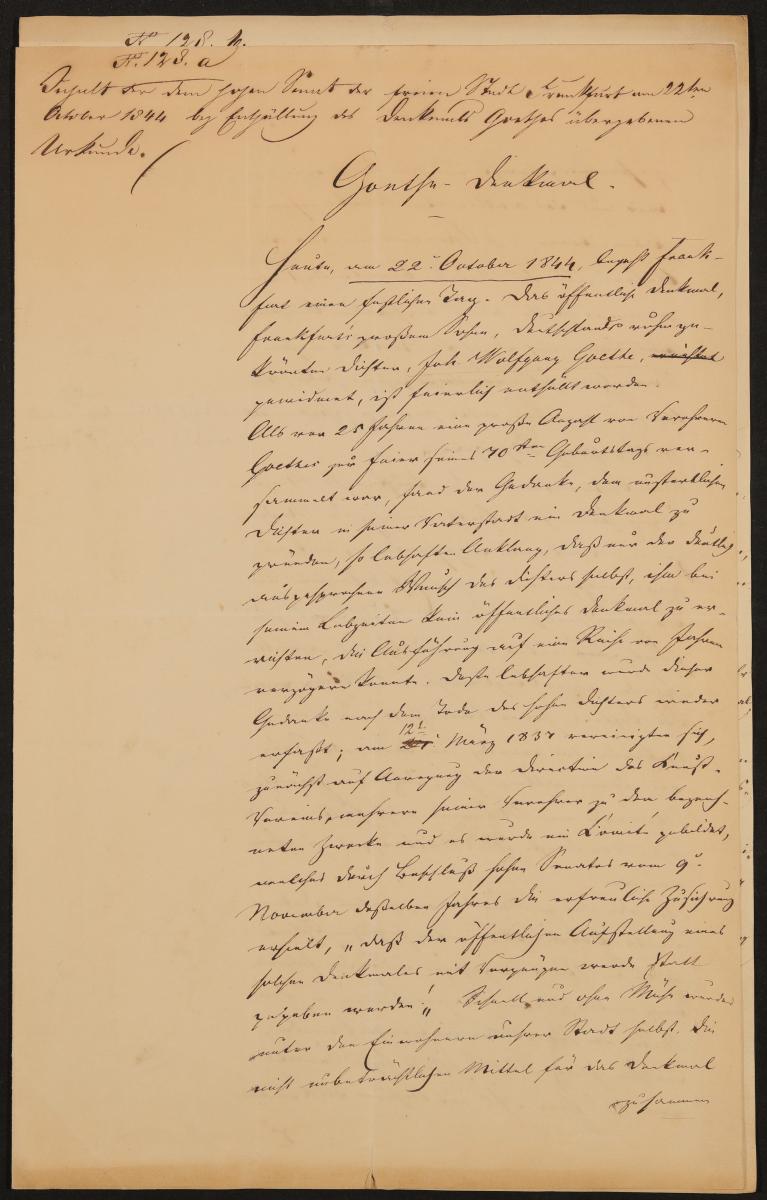 No 128. b.
No. 128. a
Inhalt der dem hohen Senat der freien Stadt Frankfurt am 22ten
October 1844 bey Enthüllung des Denkmals Goethes übergebenen
Urkunde.
Goethe-Denkmal.
Heute, am 22. October 1844, begeht Frank-
furt einen festlichen Tag. Das öffentliche Denkmal,
Frankfurt's großem Sohne, Deutschlands ruhmge-
kröntem Dichter, Joh. Wolfgang Goethe, errichtet
gewidmet, ist feierlich enthüllt worden.
Als vor 25 Jahren eine große Anzahl von Verehrern
Goethes zur Feier seines 70sten Geburtstags ver-
sammelt war, fand der Gedanke, dem unsterblichen
Dichter in seiner Vaterstadt ein Denkmal zu
gründen, so lebhaften Anklang, daß nur der deutlich
ausgesprochene Wunsch des Dichters selbst, ihm bei
seinen Lebzeiten kein öffentliches Denkmal zu er-
richten, die Ausführung auf eine Reihe von Jahren
verzögern konnte. Desto lebhafter wurde dieser
Gedanke nach dem Tode des hohen Dichters wieder
erfaßt; am 12t. März 1837 vereinigten sich,
zunächst auf Anregung der Direction des Kunst-
Vereins, mehrere seiner Verehrer zu dem bezeich-
neten Zwecke und es wurde ein Comité gebildet,
welches durch Beschluß hohen Senates vom 9.
November deßelben Jahres die erfreuliche Zusicherung
erhielt, „daß der öffentlichen Aufstellung eines
solchen Denkmales mit Vergnügen werde statt
gegeben werden." Schnell und ohne Mühe wurden
unter den Einwohnern unsrer Stadt selbst die
nicht unbeträchtlichen Mittel für das Denkmal
zusammen